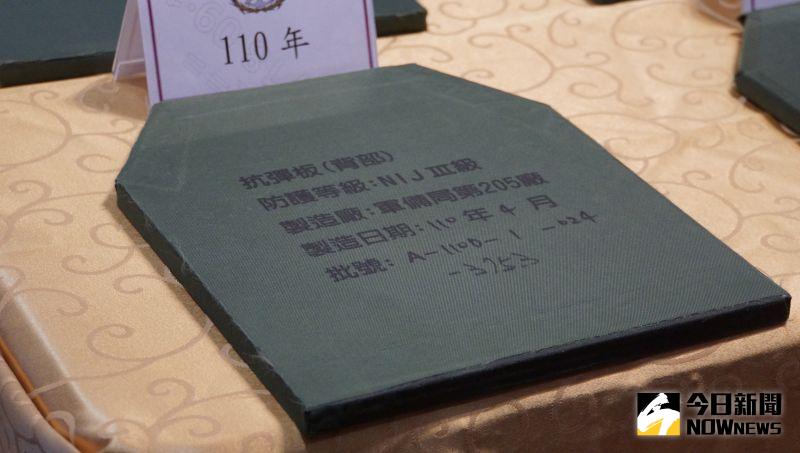 110 年
抗彈板(背部)
防護等級:NIJ III級
製造廠:軍備局第205廠
製造日期:110年4月
批號: A-110D-1-024
-3753
今日新聞
NOWNEWS